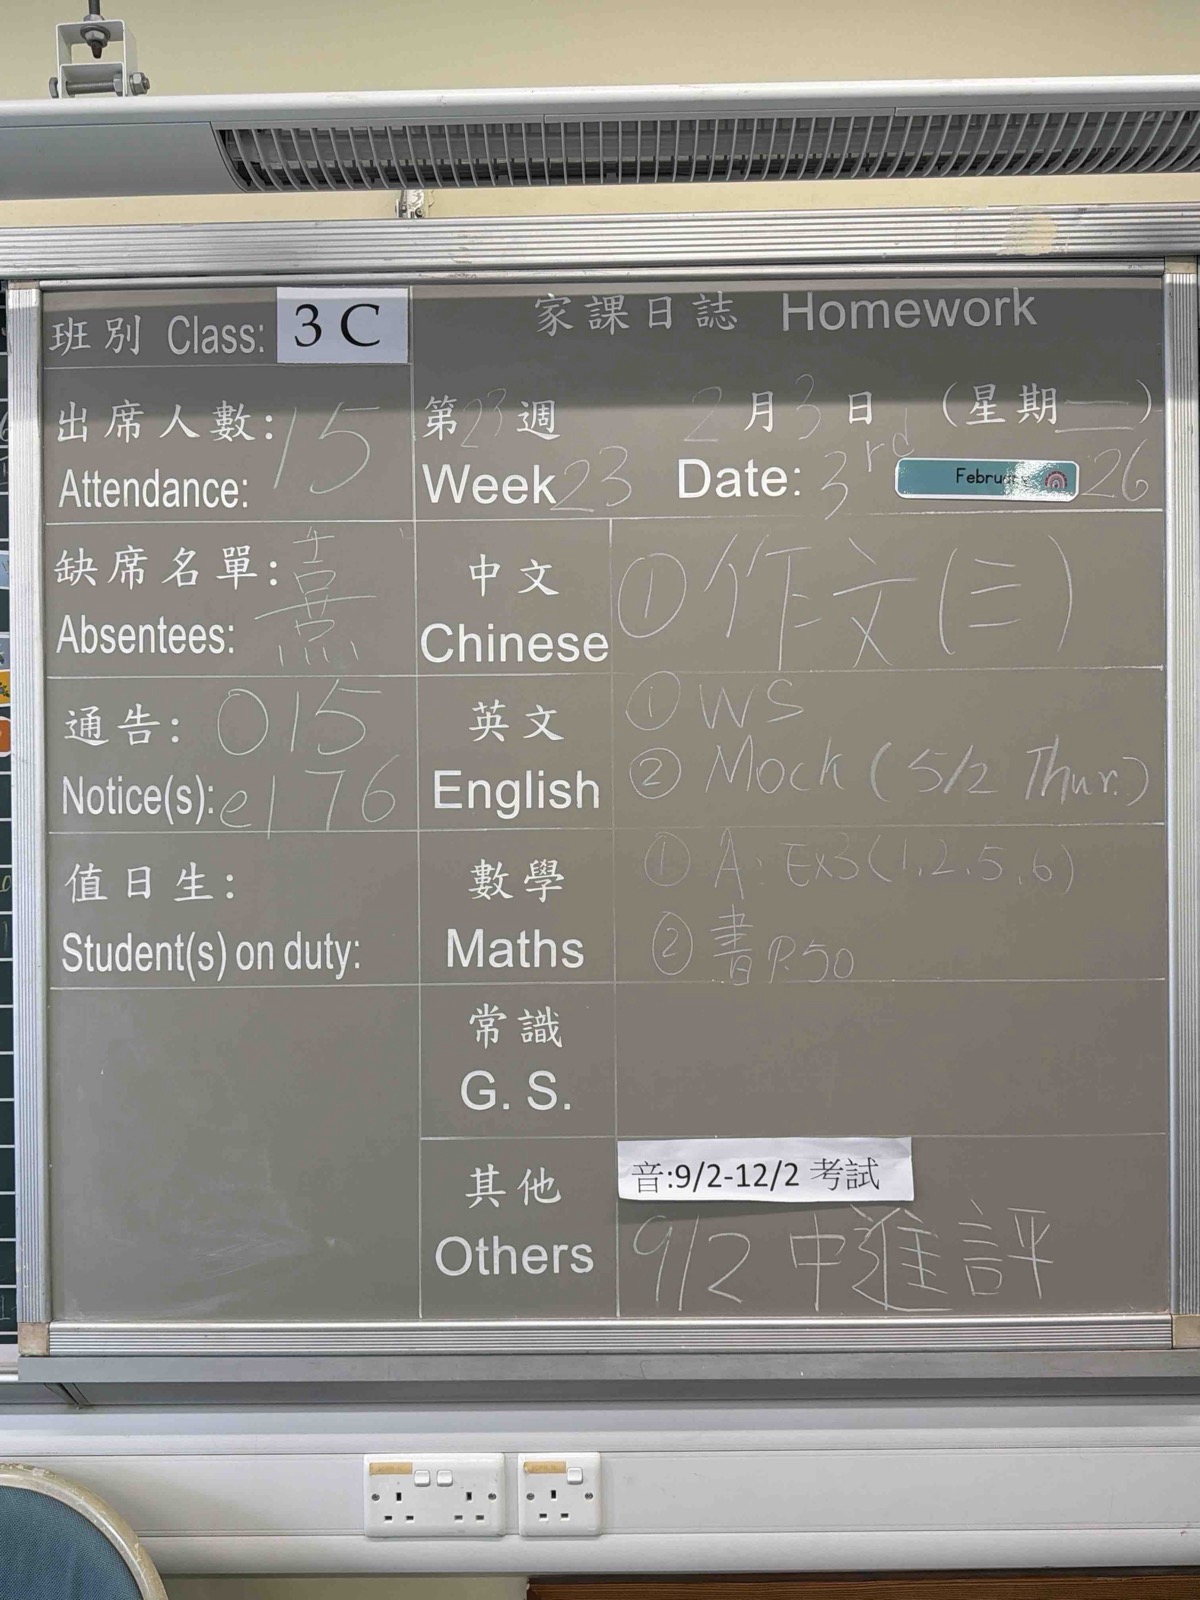 班別 Class: 3 C
家課日誌 Homework
出席人數: 15
Attendance:
第23週 2月3日 (星期二)
Week 23 Date: 3rd February 26
缺席名單: 熹
Absentees:
中文 ①作文(三)
Chinese
通告: 015
Notice(s): e176
英文 ① WS
English ② Mock (5/2 Thur.)
值日生:
Student(s) on duty:
數學 ① A. Ex3(1,2,5,6)
Maths ② 書P.50
常識
G. S.
其他 音:9/2-12/2 考試
Others 9/2 中進評